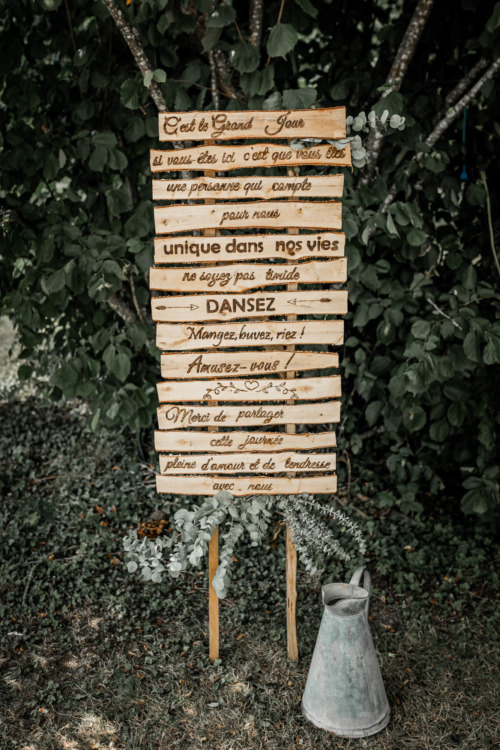 C'est le Grand Jour
si vous êtes ici c'est que vous êtes
une personne qui compte
pour nous
unique dans nos vies
ne soyez pas timide
DANSEZ
Mangez, buvez, riez !
Amusez-vous !
Merci de partager
cette journée
pleine d'amour et de tendresse
avec nous